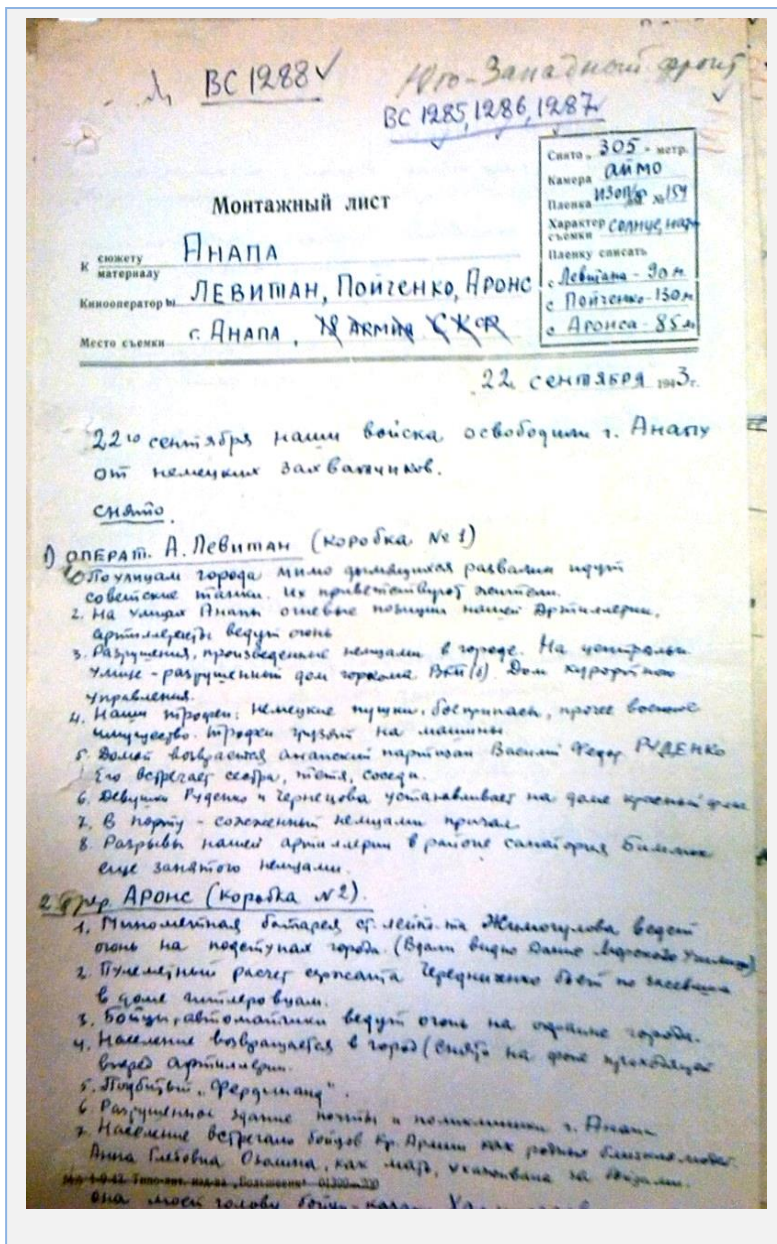 ВС 1288 ✓
Юго-Западный фронт
ВС 1285, 1286, 1287
Снято „ 305 " метр.
Камера аймо
Пленка изоп/х № 159
Характер съемки солнце, нат
Пленку списать
с Левитана - 90 м
с Пойченко - 130 м
с Аронса - 85 м
Монтажный лист
К сюжету материалу АНАПА
Кинооператоры ЛЕВИТАН, Пойченко, Аронс
Место съемки г. АНАПА,
22 сентября 1943 г.
22го сентября наши войска освободили г. Анапу
от немецких захватчиков.
снято.
1) ОПЕРАТ. А. Левитан (коробка № 1)
По улицам города мимо дымящихся развалин идут
советские танки. Их приветствуют жители.
2. На улицах Анапы огневые позиции нашей Артиллерии.
артиллеристы ведут огонь
3. Разрушения, произведенные немцами в городе. На центральн
улице - разрушенный дом горкома ВКП(б). Дом курортного
управления.
4. Наши трофеи: немецкие пушки, боеприпасы, прочее военное
имущество. Трофеи грузят на машины
5. Домой возвращается анапский партизан Василий Федор. РУДЕНКО
Его встречает сестра, тетя, соседи.
6. Девушки Руденко и Чернецова устанавливает на доме красный флаг
7. В порту - сожженный немцами причал
8. Разрывы нашей артиллерии в районе санатория Бимлюк
еще занятого немцами.
2 опер. АРОНС (коробка № 2).
1. Минометная батарея ст. лейт-та Жимогулова ведет
огонь на подступах города. (Вдали видно здание Морского Училища)
2. Пулеметный расчет сержанта Чередниженко бьет по засевшим
в доме гитлеровцам.
3. Бойцы, автоматчики ведут огонь на окраине города.
4. Население возвращается в город (снято на фоне проходящей
вперед артиллерии.
5. Подбитый „Фердинанд".
6. Разрушенное здание почты и поликлиники г. Анапа
7. Население встречало бойцов Кр. Армии как родных близких людей.
Анна Глебовна, как мать, ухаживала за бойцами.
она моет голову бойцу